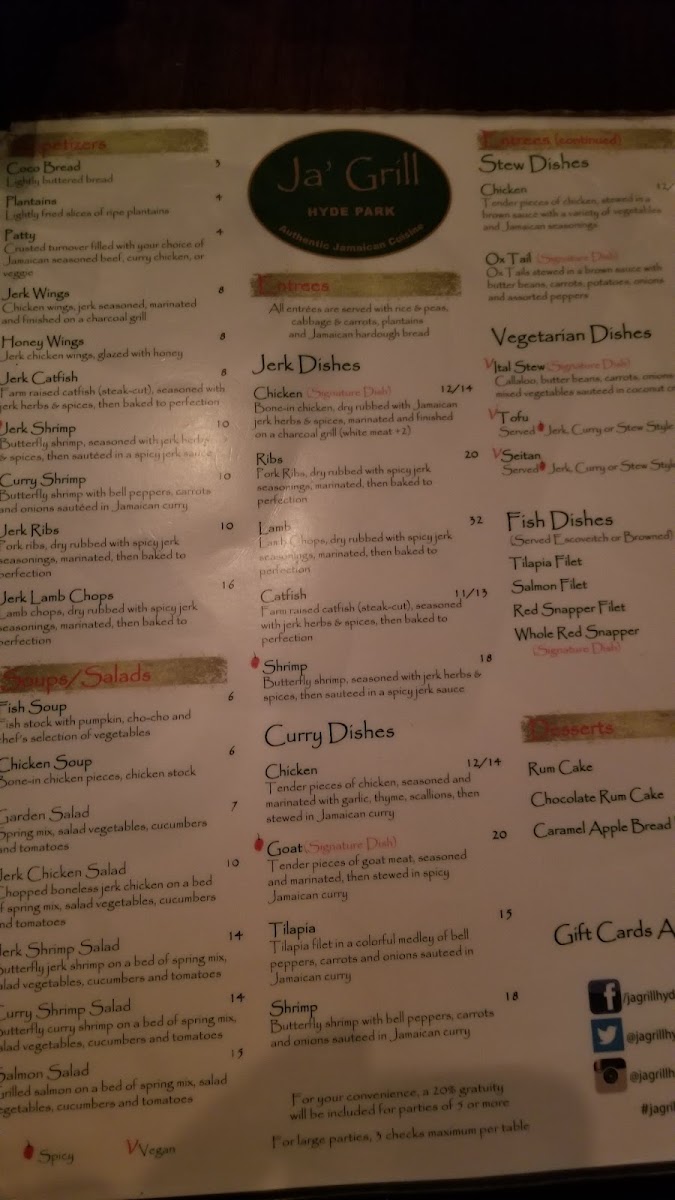 Appetizers
Coco Bread 3
Lightly buttered bread
Plantains 4
Lightly fried slices of ripe plantains
Patty 4
Crusted turnover filled with your choice of
Jamaican seasoned beef, curry chicken, or
veggie
Jerk Wings 8
Chicken wings, jerk seasoned, marinated
and finished on a charcoal grill
Honey Wings 8
Jerk chicken wings, glazed with honey
Jerk Catfish 8
Farm raised catfish (steak-cut), seasoned with
jerk herbs & spices, then baked to perfection
Jerk Shrimp 10
Butterfly shrimp, seasoned with jerk herbs
& spices, then sauteed in a spicy jerk sauce
Curry Shrimp 10
Butterfly shrimp with bell peppers, carrots
and onions sauteed in Jamaican curry
Jerk Ribs 10
Pork ribs, dry rubbed with spicy jerk
seasonings, marinated, then baked to
perfection
Jerk Lamb Chops 16
Lamb chops, dry rubbed with spicy jerk
seasonings, marinated, then baked to
perfection
Soups/Salads
Fish Soup 6
Fish stock with pumpkin, cho-cho and
chef's selection of vegetables
Chicken Soup 6
Bone-in chicken pieces, chicken stock
Garden Salad 7
Spring mix, salad vegetables, cucumbers
and tomatoes
Jerk Chicken Salad 10
Chopped boneless jerk chicken on a bed
of spring mix, salad vegetables, cucumbers
and tomatoes
Jerk Shrimp Salad 14
Butterfly jerk shrimp on a bed of spring mix,
salad vegetables, cucumbers and tomatoes
Curry Shrimp Salad 14
Butterfly curry shrimp on a bed of spring mix,
salad vegetables, cucumbers and tomatoes
Salmon Salad 15
Grilled salmon on a bed of spring mix, salad
vegetables, cucumbers and tomatoes
Spicy
V Vegan
Ja' Grill
HYDE PARK
Authentic Jamaican Cuisine
Entrees
All entrees are served with rice & peas,
cabbage & carrots, plantains
and Jamaican hardough bread
Jerk Dishes
Chicken (Signature Dish) 12/14
Bone-in chicken, dry rubbed with Jamaican
jerk herbs & spices, marinated and finished
on a charcoal grill (white meat +2)
Ribs 20
Pork Ribs, dry rubbed with spicy jerk
seasonings, marinated, then baked to
perfection
Lamb 32
Lamb Chops, dry rubbed with spicy jerk
seasonings, marinated, then baked to
perfection
Catfish 11/13
Farm raised catfish (steak-cut), seasoned
with jerk herbs & spices, then baked to
perfection
Shrimp 18
Butterfly shrimp, seasoned with jerk herbs &
spices, then sauteed in a spicy jerk sauce
Curry Dishes
Chicken 12/14
Tender pieces of chicken, seasoned and
marinated with garlic, thyme, scallions, then
stewed in Jamaican curry
Goat (Signature Dish) 20
Tender pieces of goat meat, seasoned
and marinated, then stewed in spicy
Jamaican curry
Tilapia 15
Tilapia filet in a colorful medley of bell
peppers, carrots and onions sauteed in
Jamaican curry
Shrimp 18
Butterfly shrimp with bell peppers, carrots
and onions sauteed in Jamaican curry
For your convenience, a 20% gratuity
will be included for parties of 5 or more
For large parties, 3 checks maximum per table
Entrees (continued)
Stew Dishes
Chicken 12/
Tender pieces of chicken, stewed in a
brown sauce with a variety of vegetables
and Jamaican seasonings
Ox Tail (Signature Dish)
Ox Tails stewed in a brown sauce with
butter beans, carrots, potatoes, onions
and assorted peppers
Vegetarian Dishes
V Ital Stew (Signature Dish)
Callaloo, butter beans, carrots, onions
mixed vegetables sauteed in coconut
V Tofu
Served Jerk, Curry or Stew Style
V Seitan
Served Jerk, Curry or Stew Style
Fish Dishes
(Served Escoveitch or Browned)
Tilapia Filet
Salmon Filet
Red Snapper Filet
Whole Red Snapper
(Signature Dish)
Desserts
Rum Cake
Chocolate Rum Cake
Caramel Apple Bread
Gift Cards A
/jagrillhyd
@jagrillhy
@jagrillh
#jagril